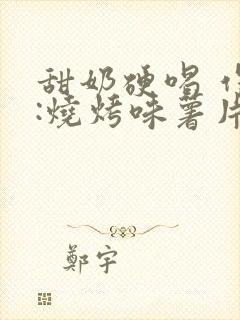 甜奶硬唱 作
:燒烤味薯片
鄭宇